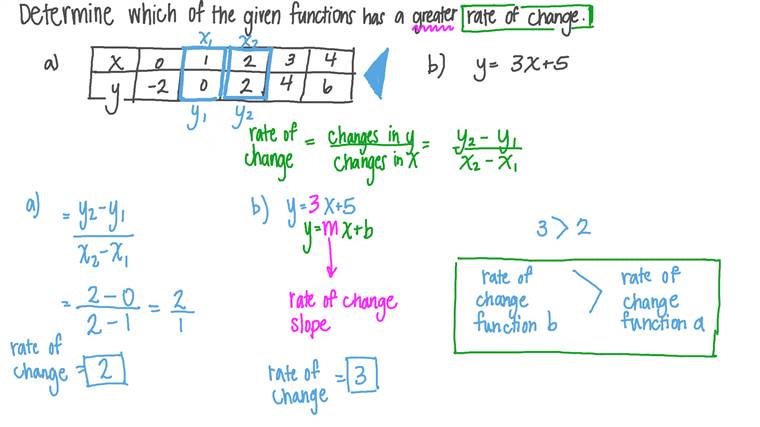 Determine which of the given functions has a greater rate of change.
x₁ x₂
a) x 0 1 2 3 4
y -2 0 2 4 6
y₁ y₂
b) y = 3x+5
rate of change = changes in y / changes in x = y₂ - y₁ / x₂ - x₁
a) = y₂-y₁ / x₂-x₁
= 2-0 / 2-1 = 2 / 1
rate of
change = 2
b) y=3x+5
y=mx+b
rate of change
slope
rate of
change = 3
3 > 2
rate of change function b > rate of change function a